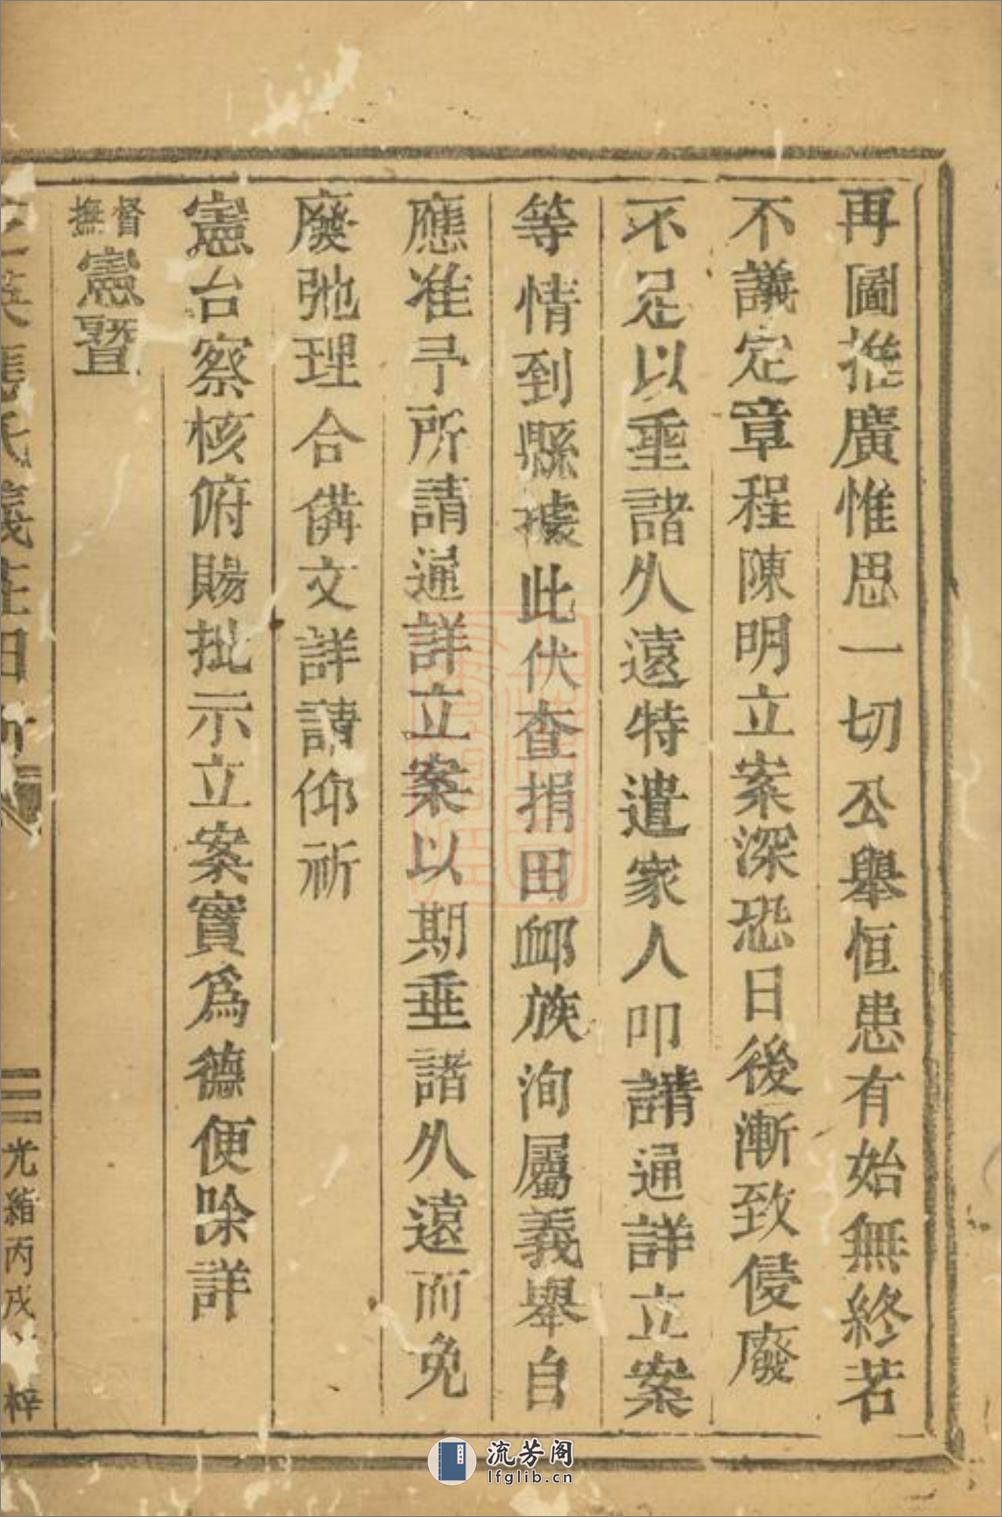 再圖推廣惟思一切公舉恒患有始無終若
不議定章程陳明立案深恐日後漸致侵廢
不足以垂諸久遠特遣家人叩請通詳立案
等情到縣據此伏查捐田衈族洵屬義舉自
應准予所請通詳立案以期垂諸久遠而免
廢弛理合備文詳請仰祈
憲台察核俯賜批示立案實爲德便除詳
督撫憲暨
氏義莊田
二
光緒丙戌
梓
流芳阁
lfglib.cn